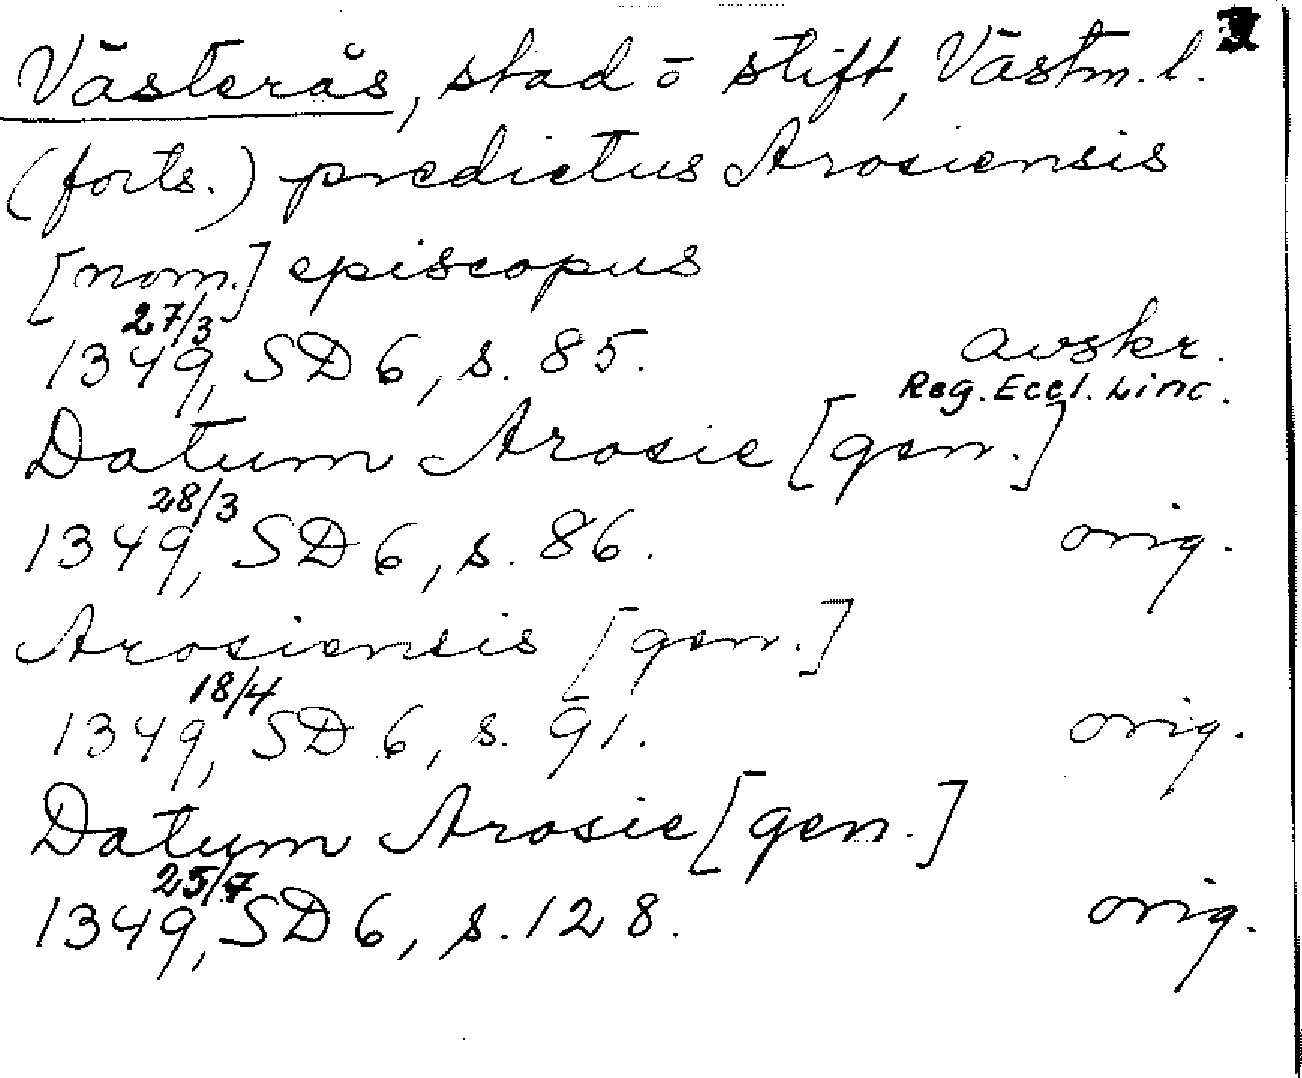 Västerås, stad ō stift, Västm. l.
(forts.) predictus Arosiensis
[nom.] episcopus
27/3
1349, SD 6, s. 85. avskr.
Reg. Eccl. Linc.
Datum Arosie [gen.]
28/3
1349, SD 6, s. 86. orig.
Arosiensis [gen.]
18/4
1349, SD 6, s. 91. orig.
Datum Arosie [gen.]
25/7
1349, SD 6, s. 128. orig.